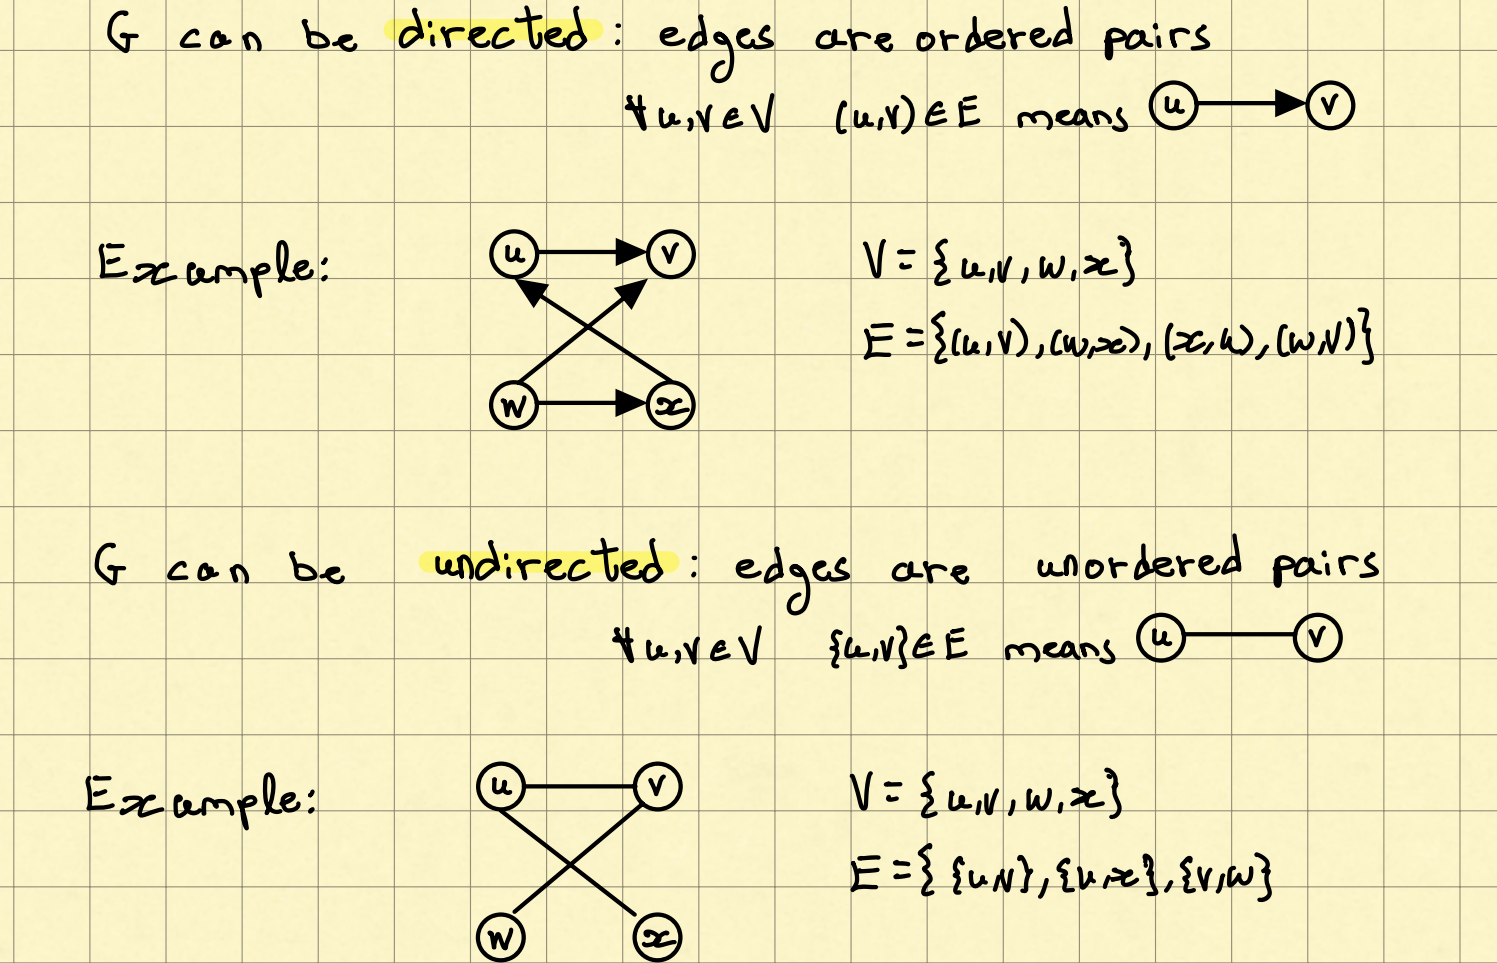 G can be directed: edges are ordered pairs
∀u,v∈V (u,v)∈E means u v
Example:
u v
w x
V={u,v,w,x}
E={(u,v),(w,x),(x,u),(w,v)}
G can be undirected: edges are unordered pairs
∀u,v∈V {u,v}∈E means u v
Example:
u v
w x
V={u,v,w,x}
E={ {u,v},{u,x},{v,w}